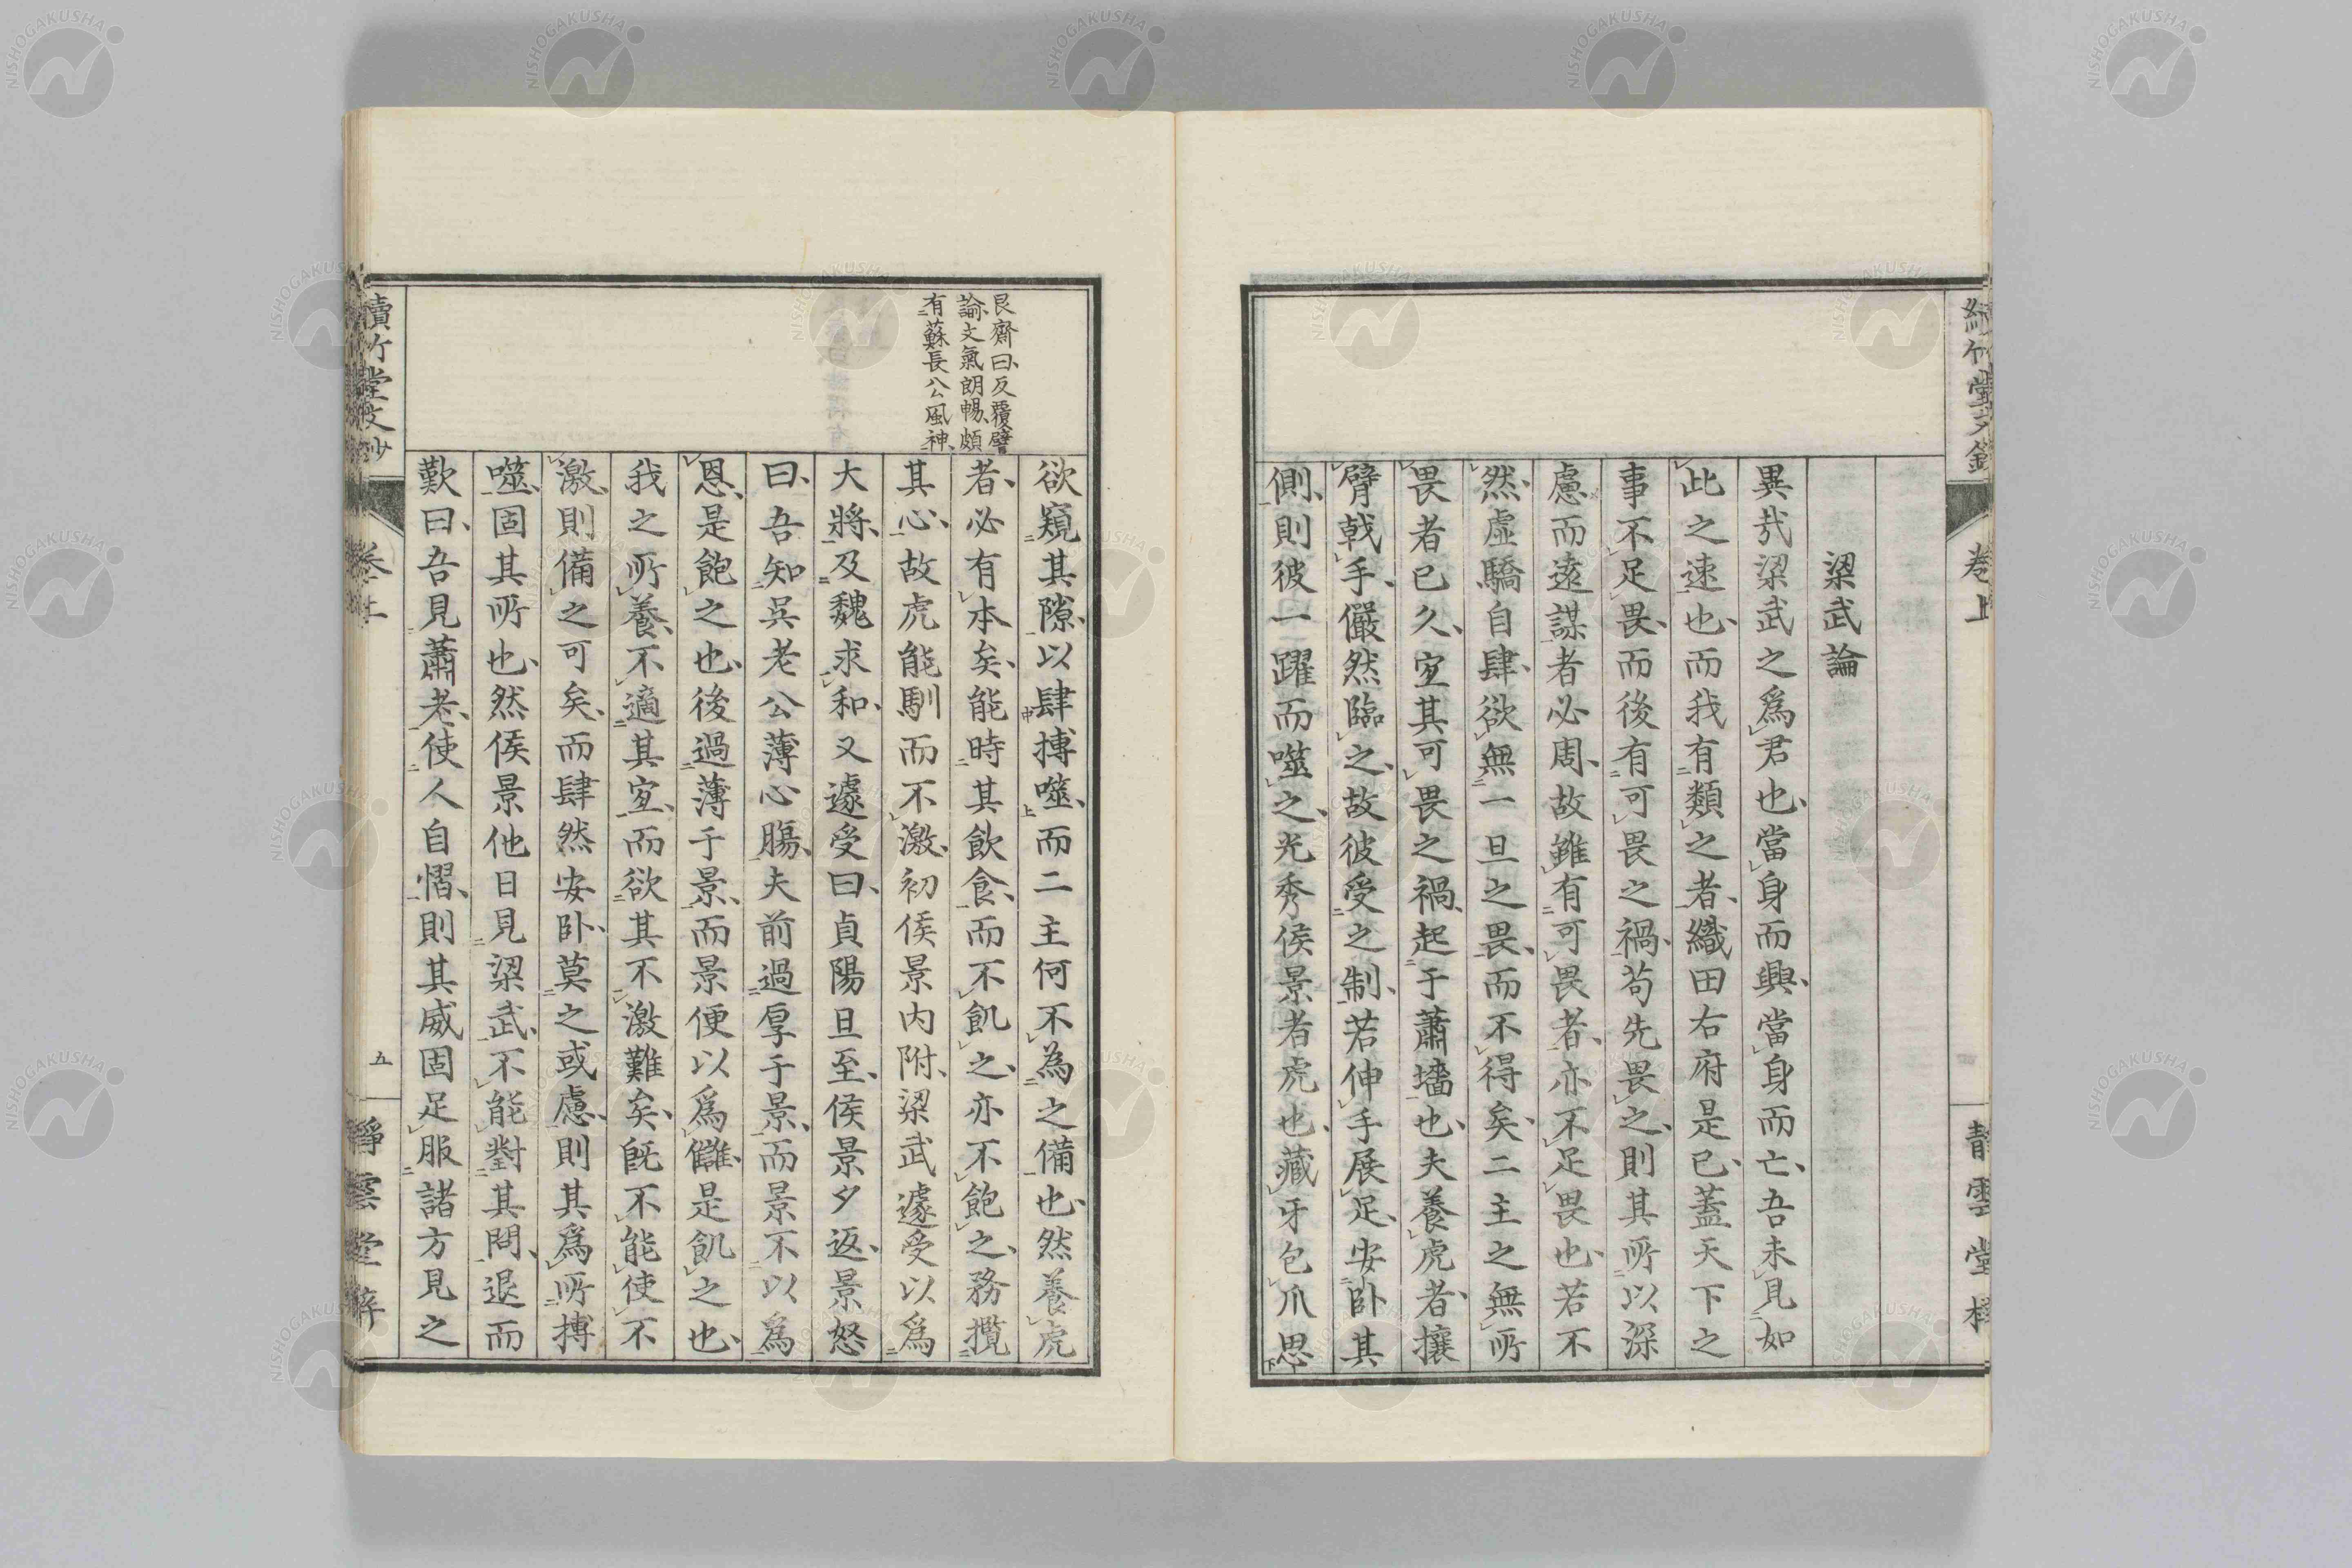 梁武論
異哉梁武之爲君也當身而興當身而亡吾未見如
此之速也而我有類之者織田右府是已蓋天下之
事不足畏而後有可畏之禍苟先畏之則其所以深
慮而遠謀者必周故雖有可畏者亦不足畏也若不
然虛驕自肆欲無一旦之畏而不得矣二主之無所
畏者已久宜其可畏之禍起于蕭墻也夫養虎者攘
臂戟手儼然臨之故彼受之制若伸手展足安臥其
側則彼一躍而噬之光秀侯景者虎也藏牙包爪思
卷上
艮齋曰反覆譬
論文氣朗暢頗
有蘇長公風神
欲窺其隙以肆搏噬而二主何不為之備也然養虎
者必有本矣能時其飲食而不飢之亦不飽之務攬
其心故虎能馴而不激初侯景內附梁武遽受以爲
大將及魏求和又遽受曰貞陽旦至侯景夕返景怒
曰吾知吳老公薄心腸夫前過厚于景而景不以為
恩是飽之也後過薄于景而景便以爲讎是飢之也
我之所養不適其宜而欲其不激難矣既不能使不
激則備之可矣而肆然安臥莫之或慮則其爲所搏
噬固其所也然侯景他日見梁武不能對其問退而
歎曰吾見蕭老使人自慴則其威固足服諸方見之
讀竹堂文鈔
五
靜雲堂梓
NISHOGAKUSHA